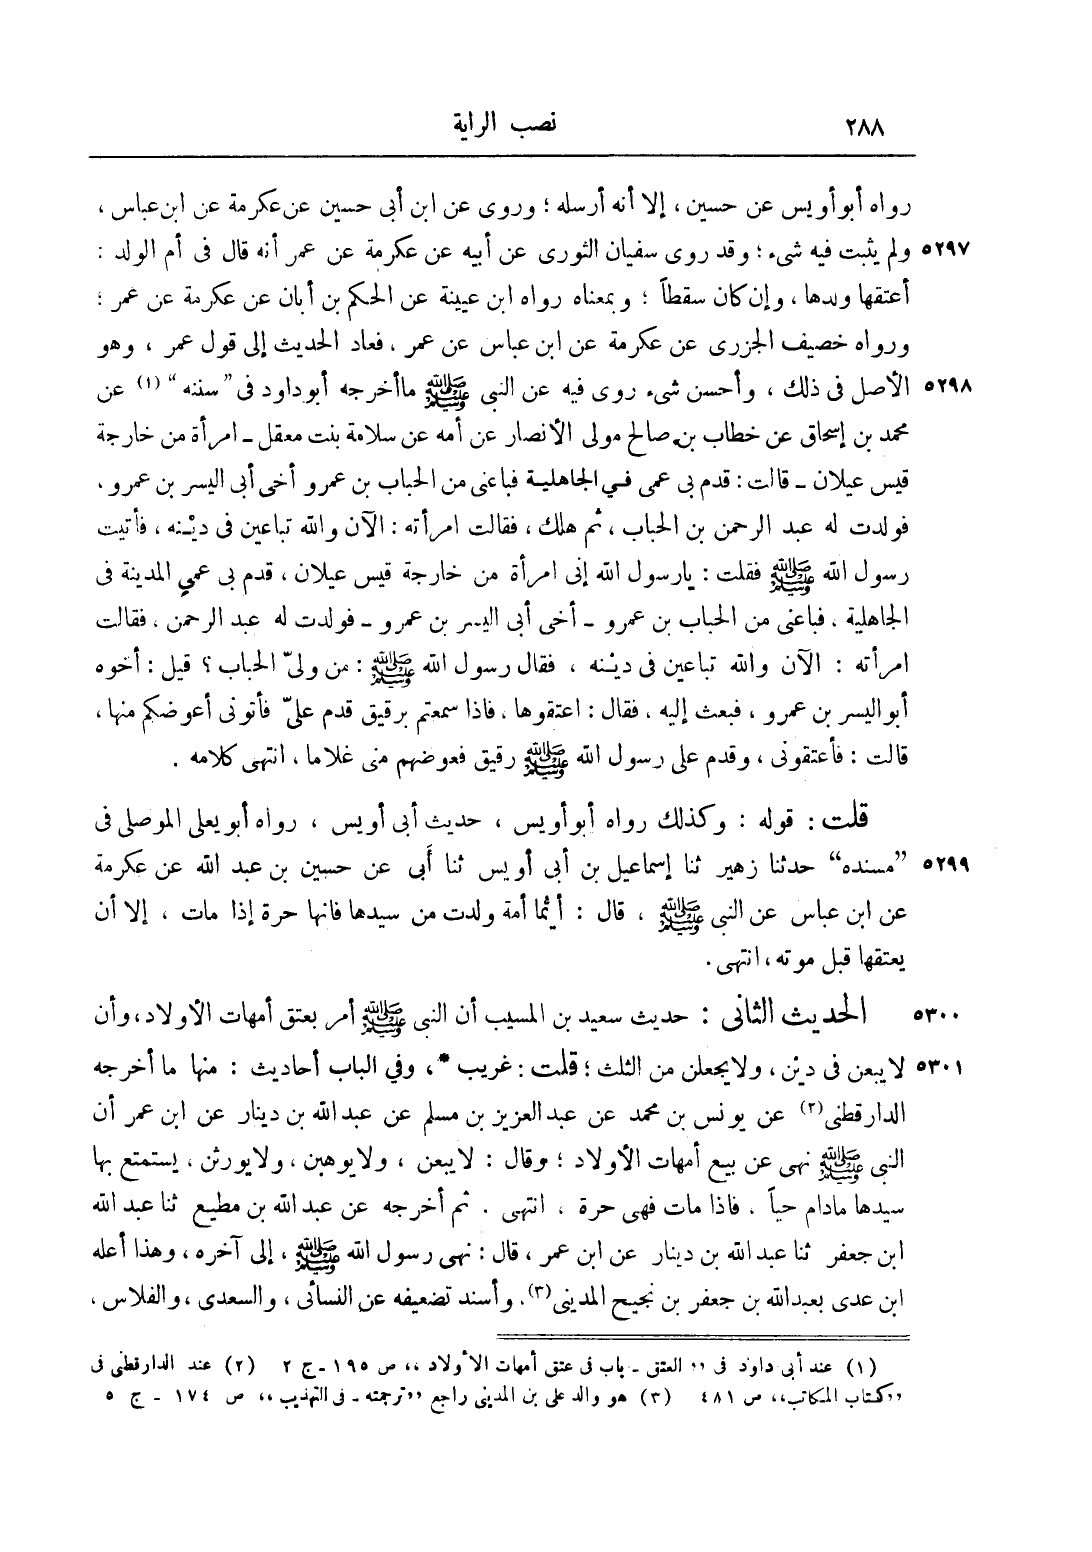 ٢٨٨ نصب الراية
رواه أبو أويس عن حسين، إلا أنه أرسله؛ وروى عن ابن أبى حسين عن عكرمة عن ابن عباس،
٥٢٩٧ ولم يثبت فيه شىء؛ وقد روى سفيان الثورى عن أبيه عن عكرمة عن عمر أنه قال فى أم الولد:
أعتقها ولدها، وإن كان سقطاً؛ وبمعناه رواه ابن عيينة عن الحكم بن أبان عن عكرمة عن عمر؛
ورواه خصيف الجزرى عن عكرمة عن ابن عباس عن عمر، فعاد الحديث إلى قول عمر، وهو
٥٢٩٨ الأصل فى ذلك، وأحسن شىء روى فيه عن النبى ﷺ ماأخرجه أبو داود فى "سننه" (١) عن
محمد بن إسحاق عن خطاب بن صالح مولى الأنصار عن أمه عن سلامة بنت معقل ـ امرأة من خارجة
قيس عيلان ـ قالت: قدم بى عمى فـي الجاهلية فباعنى من الحباب بن عمرو أخى أبى اليسر بن عمرو،
فولدت له عبد الرحمن بن الحباب، ثم هلك، فقالت امرأته: الآن والله تباعين فى ديْنه، فأتيت
رسول الله ﷺ فقلت: يارسول الله إنى امرأة من خارجة قيس عيلان، قدم بى عمي المدينة فى
الجاهلية، فباعنى من الحباب بن عمرو ـ أخى أبى اليسر بن عمرو ـ فولدت له عبد الرحمن، فقالت
امرأته: الآن والله تباعين فى ديْنه، فقال رسول الله ﷺ: من ولىّ الحباب؟ قيل: أخوه
أبو اليسر بن عمرو، فبعث إليه، فقال: اعتقوها، فاذا سمعتم برقيق قدم علىّ فأتونى أعوضكم منها،
قالت: فأعتقونى، وقدم على رسول الله ﷺ رقيق فعوضهم منى غلاما، انتهى كلامه.
قلت: قوله: وكذلك رواه أبو أويس، حديث أبى أويس، رواه أبو يعلى الموصلى فى
٥٢٩٩ "مسنده" حدثنا زهير ثنا إسماعيل بن أبى أويس ثنا أَبى عن حسين بن عبد الله عن عكرمة
عن ابن عباس عن النبى ﷺ، قال: أيُّما أمة ولدت من سيدها فانها حرة إذا مات، إلا أن
يعتقها قبل موته، انتهى.
٥٣٠٠ الحديث الثانى: حديث سعيد بن المسيب أن النبى ﷺ أمر بعتق أمهات الأولاد، وأن
٥٣٠١ لا يبعن فى ديْن، ولايجعلن من الثلث؛ قلت: غريب *، وفي الباب أحاديث: منها ما أخرجه
الدارقطنى(٢) عن يونس بن محمد عن عبد العزيز بن مسلم عن عبد الله بن دينار عن ابن عمر أن
النبى ﷺ نهى عن بيع أمهات الأولاد؛ وقال: لايبعن، ولايوهبن، ولايورثن، يستمتع بها
سيدها مادام حياً، فاذا مات فهى حرة، انتهى. ثم أخرجه عن عبد الله بن مطيع ثنا عبد الله
ابن جعفر ثنا عبد الله بن دينار عن ابن عمر، قال: نهى رسول الله ﷺ، إلى آخره، وهذا أعله
ابن عدى بعبدالله بن جعفر بن نجيح المدينى(٣)، وأسند تضعيفه عن النسائى، والسعدى، والفلاس،
(١) عند أبى داود فى ,, العتق ـ باب فى عتق أمهات الأولاد ،، ص ١٩٥ ـ ج ٢ (٢) عند الدارقطنى فى
,,كتاب المكاتب،، ص ٤٨١ (٣) هو والد على بن المدينى راجع ,,ترجمته ـ فى التهذيب ،، ص ١٧٤ ـ ج ٥